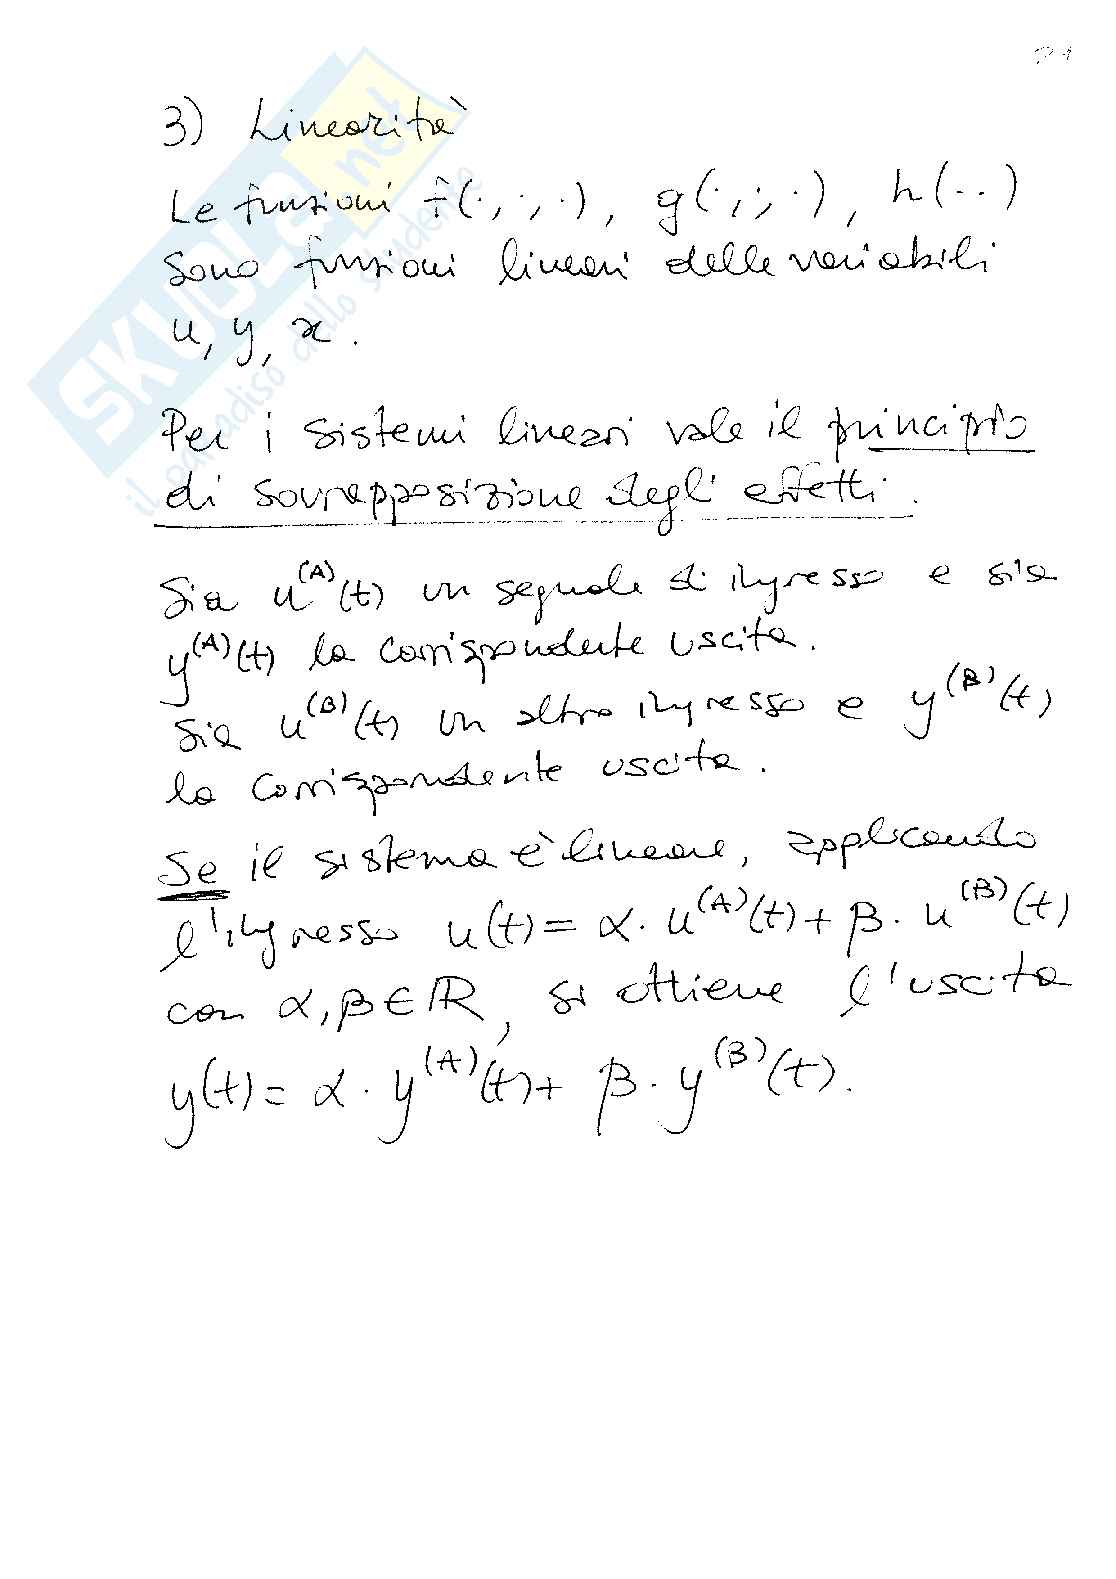 3) Linearità
Le funzioni f(·,·,·), g(·,·,·), h(··)
sono funzioni lineari delle variabili
u, y, x.
Per i sistemi lineari vale il principio
di sovrapposizione degli effetti.
Sia u^(A)(t) un segnale di ingresso e sia
y^(A)(t) la corrispondente uscita.
Sia u^(B)(t) un altro ingresso e y^(B)(t)
la corrispondente uscita.
Se il sistema è lineare, applicando
l'ingresso u(t) = α · u^(A)(t) + β · u^(B)(t)
con α, β ∈ ℝ, si ottiene l'uscita
y(t) = α · y^(A)(t) + β · y^(B)(t).
SKUOLA.net
il paradiso dello studente